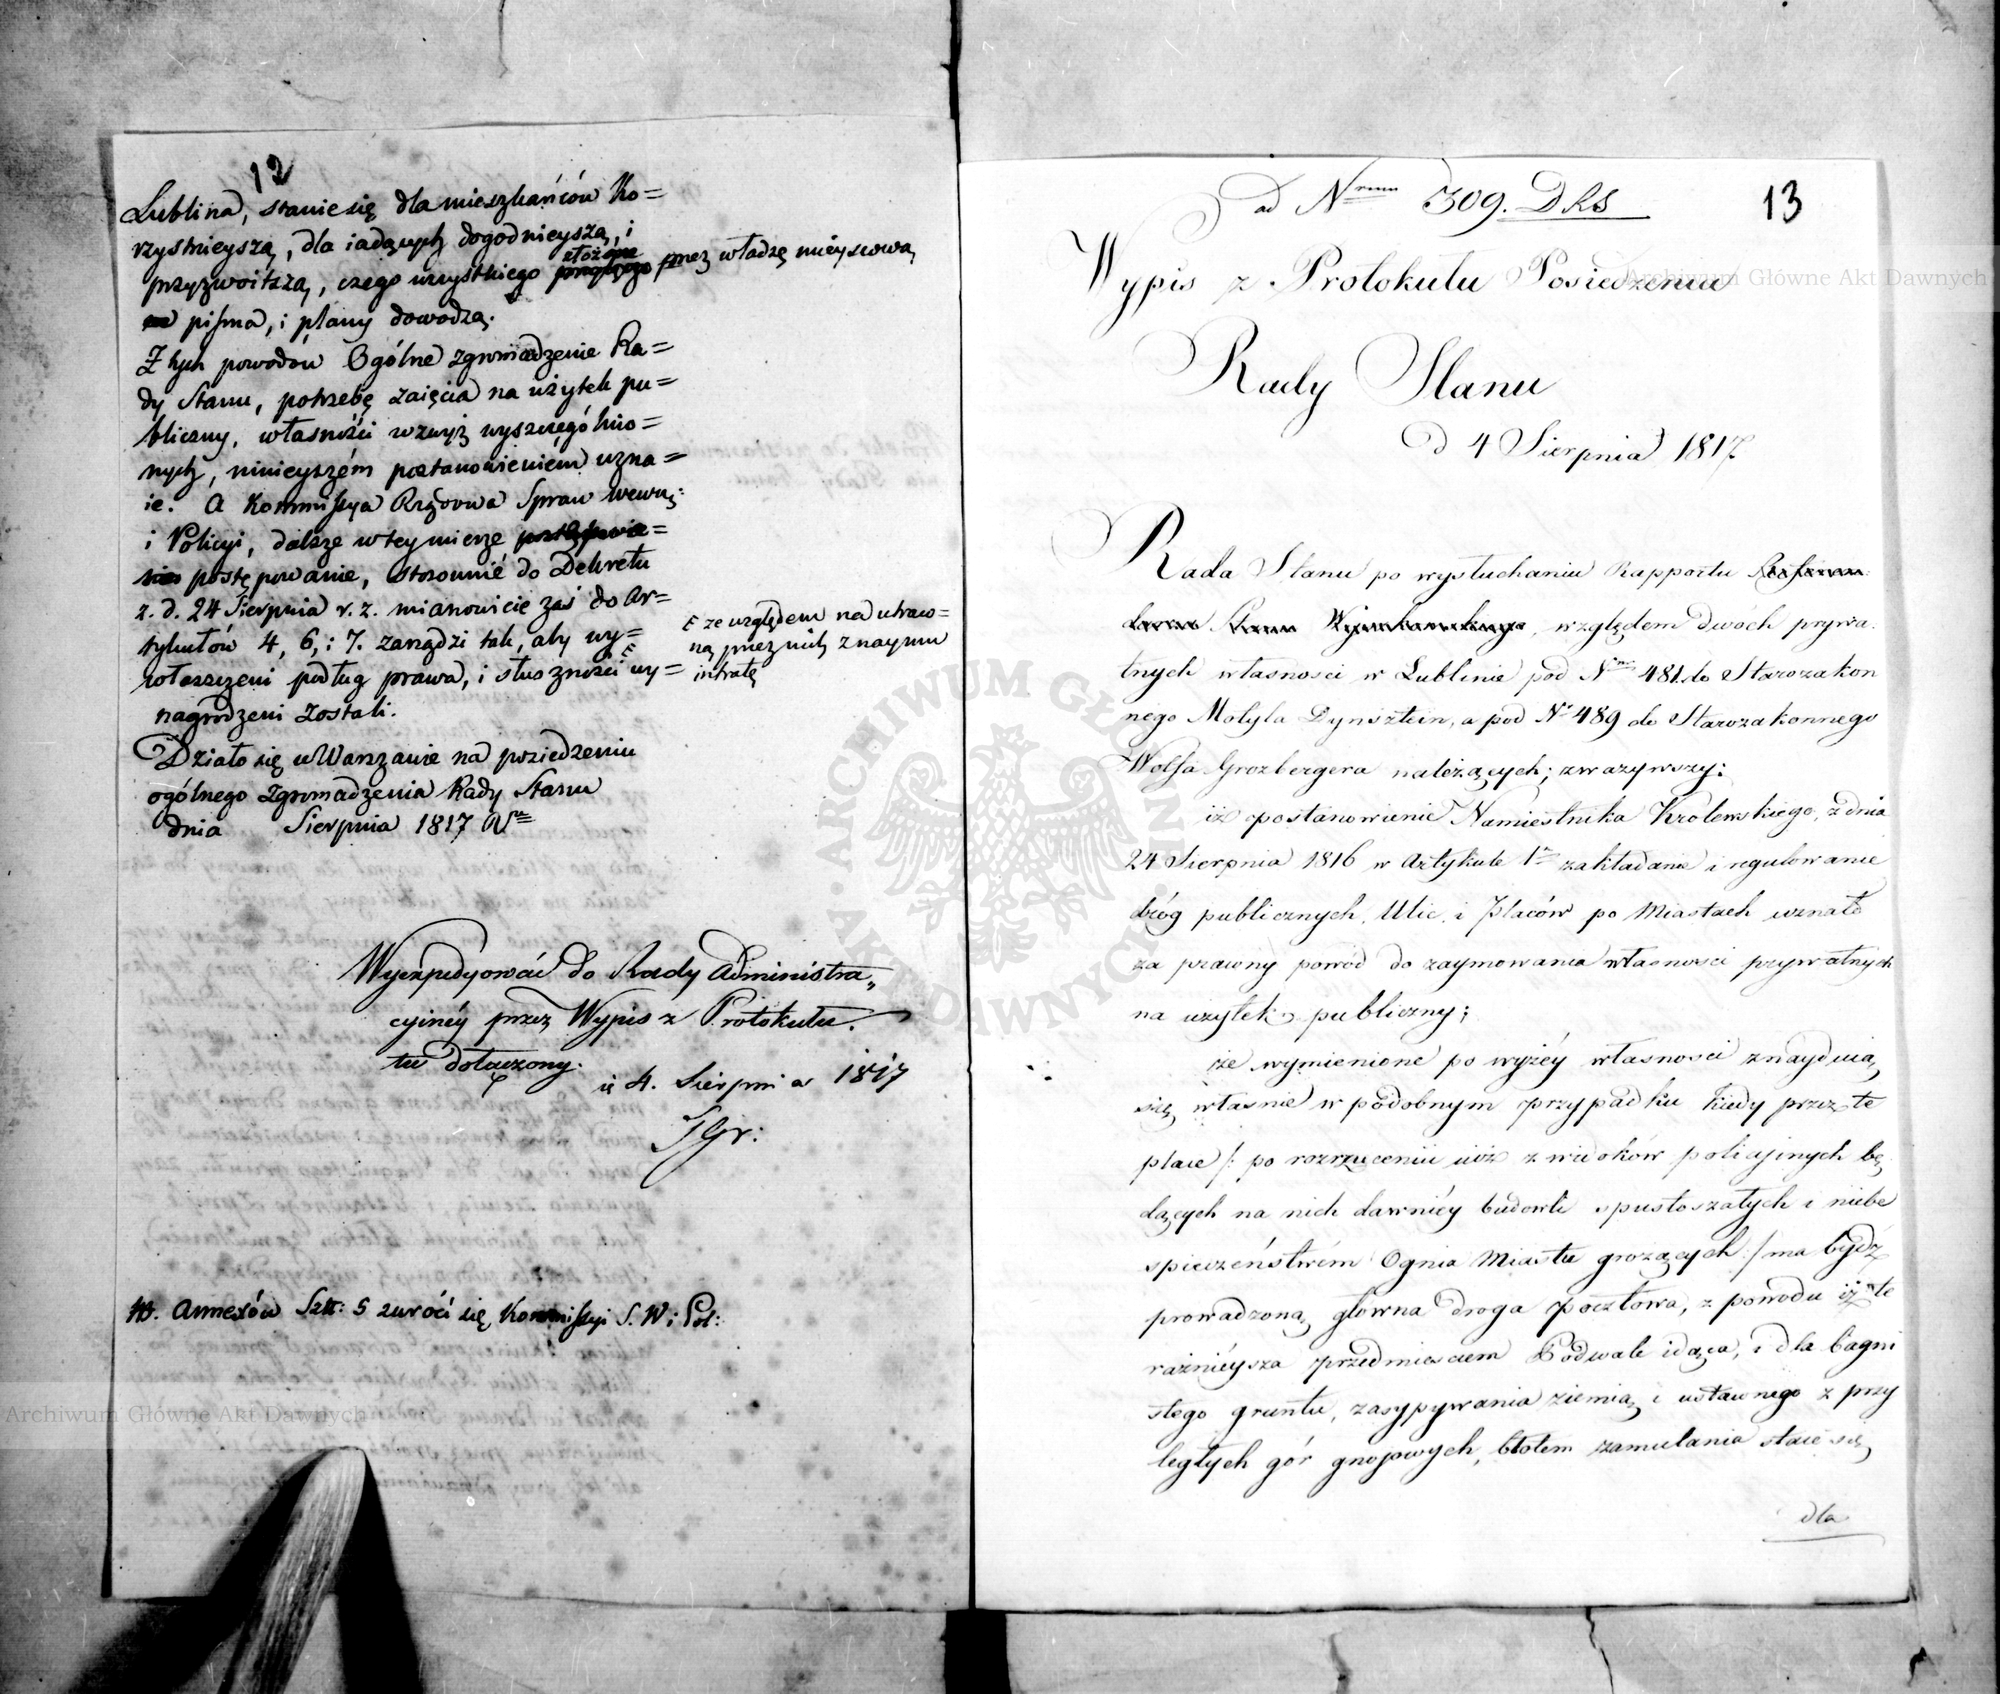 12
Lublina, stanie się dla mieszkańców Ko=
rzystnieyszą, dla iadących dogodnieyszą, i
przyzwoitszą, czego wszystkiego złożone przez władzę mieyscową
pisma, i plany dowodzą.
Z tych powodów Ogólne zgromadzenie Ra=
dy Stanu, potrzebę zaięcia na użytek pu=
bliczny, własności wzwyż wyszczególnio=
nych, ninieyszém postanowieniem uzna=
ie. A Kommissya Rządowa Spraw wewnę:
i Policyi, dalsze w tey mierze
postępowanie, stosownie do Dekretu
z. d. 24 Sierpnia r. z. mianowicie zaś do Ar=
tykułów 4, 6, i 7. zarządzi tak, aby wy=
właszczeni podług prawa, i słuszności wy=
nagrodzeni zostali.
ze względem na utraco=
ną przez nich z naymu
intratę
Działo się w Warszawie na posiedzeniu
ogólnego Zgromadzenia Rady Stanu
dnia Sierpnia 1817 R
Wyexpedyować do Rady Administra„
cyinéy przez Wypis z Protokułu.
tu dołączony.
d. 4. Sierpnia 1817
JGr:
NB. Annexów Szt: 5 zwróci się Kommissyi S. W. i Pol:
13
ad Nrum 309. DRS
Wypis z Protokułu Posiedzenia
Rady Stanu
D 4 Sierpnia 1817
Rada Stanu po wysłuchaniu Rapportu
względem dwóch prywa
tnych własności w Lublinie pod Nrm 481 do Starozakon
nego Motyla Dynsztein, a pod Nr 489 do Starozakonnego
Wolfa Grozbergera należących; zważywszy:
iż postanowienie Namiestnika Królewskiego, z dnia
24 Sierpnia 1816 w Artykule 1m zakładanie i regulowanie
dróg publicznych, Ulic, i Placów po Miastach uznało
za prawny powód do zaymowania własności prywatnych
na użytek publiczny;
że wymienione po wyżéy własności znayduią
się własnie w podobnym przypadku kiedy przez te
place /: po rozrzuceniu iuż z widoków policyinych bę
dących na nich dawniéy budowli spustoszałych i niebe
spieczeństwem Ognia Miastu grożących :/ ma bydź
prowadzona główna droga pocztowa, z powodu iż te
raźnieysza przedmieściem Podwale idąca, i dla bagni
stego gruntu, zasypywania ziemią i ustawnego z przy
ległych gór gnojowych, błotem zamulania staie się
dla
Archiwum Główne Akt Dawnych
Archiwum Główne Akt Dawnych
ARCHIWUM GŁÓWNE AKT DAWNYCH